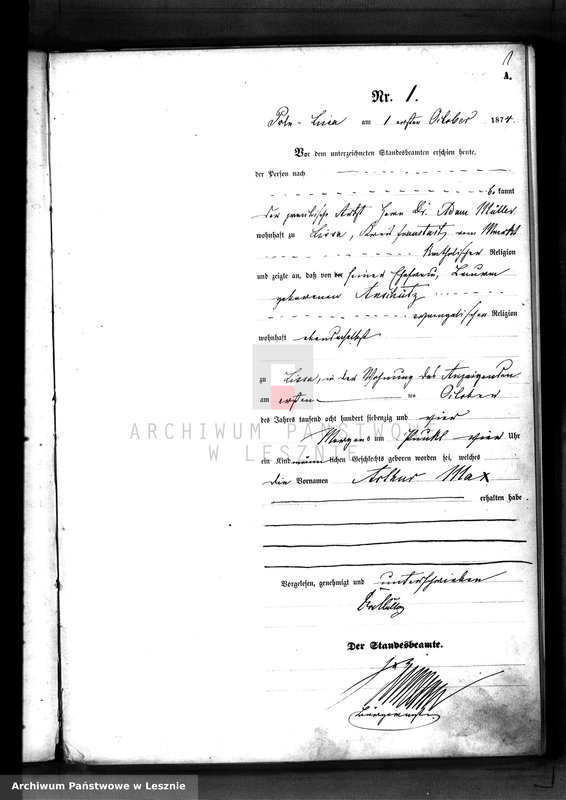 1
A.
Nr. 1.
Poln-Lissa am 1 ersten October 1874.
Vor dem unterzeichneten Standesbeamten erschien heute,
der Person nach
bekannt
der practische Arzt Herr Dr. Adam Müller
wohnhaft zu Lissa, Kreis Fraustadt, am Markt
katholischer Religion
und zeigte an, daß von der seiner Ehefrau, Laura
geborenen Anschütz
evangelischer Religion
wohnhaft ebendaselbst
zu Lissa, in der Wohnung des Anzeigenden
am ersten ten October
des Jahres tausend acht hundert siebenzig und vier
Morgens um Punkt vier Uhr
ein Kind männlichen Geschlechts geboren worden sei, welches
die Vornamen Arthur Max
erhalten habe
Vorgelesen, genehmigt und unterschrieben
Dr Müller
Der Standesbeamte.
Bürgermeister
ARCHIWUM PAŃSTWOWE
W LESZNIE
Archiwum Państwowe w Lesznie